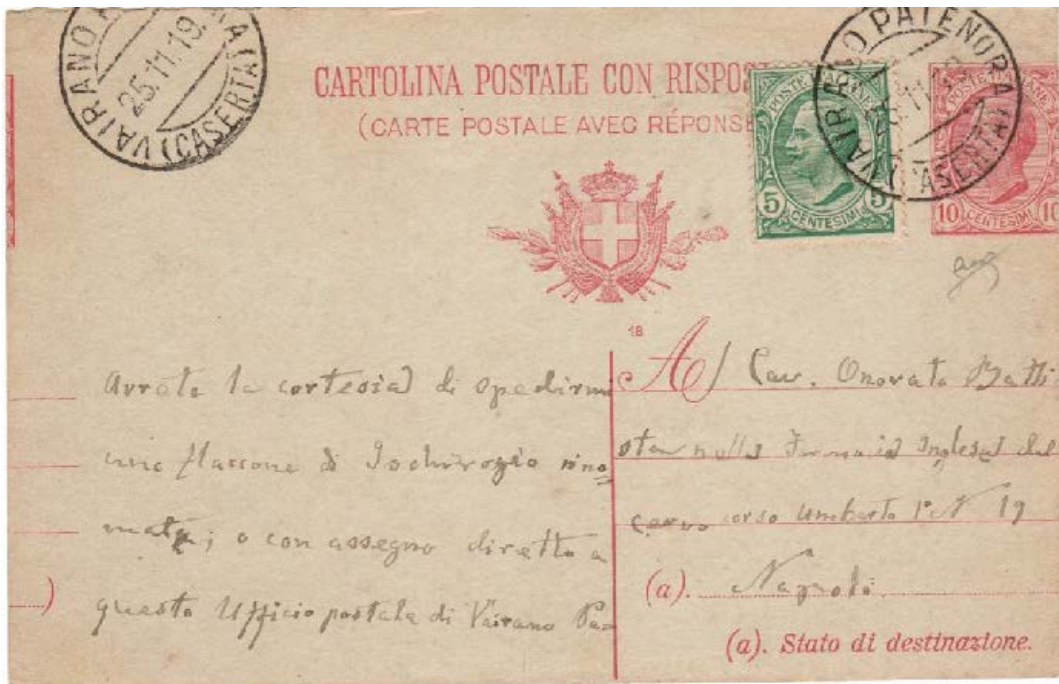 VAIRANO
25.11.19.
(CASERTA)
CARTOLINA POSTALE CON RISPOS
(CARTE POSTALE AVEC RÉPONSE
POSTE ITALIANE
5 5
CENTESIMI
VAIRANO PATENORA
(CASERTA)
POSTE ITALIANE
10 10
CENTESIMI
18.
Avrete la cortesia di spedirmi
uno flaccone di Ischirogio rino=
mato; o con assegno diretto a
questo Ufficio postale di Vairano Pa=
A/ Cav. Onorato Batti
sta nella Farmacia Inglese del
corso Umberto 1° N 19
(a). Napoli.
(a). Stato di destinazione.